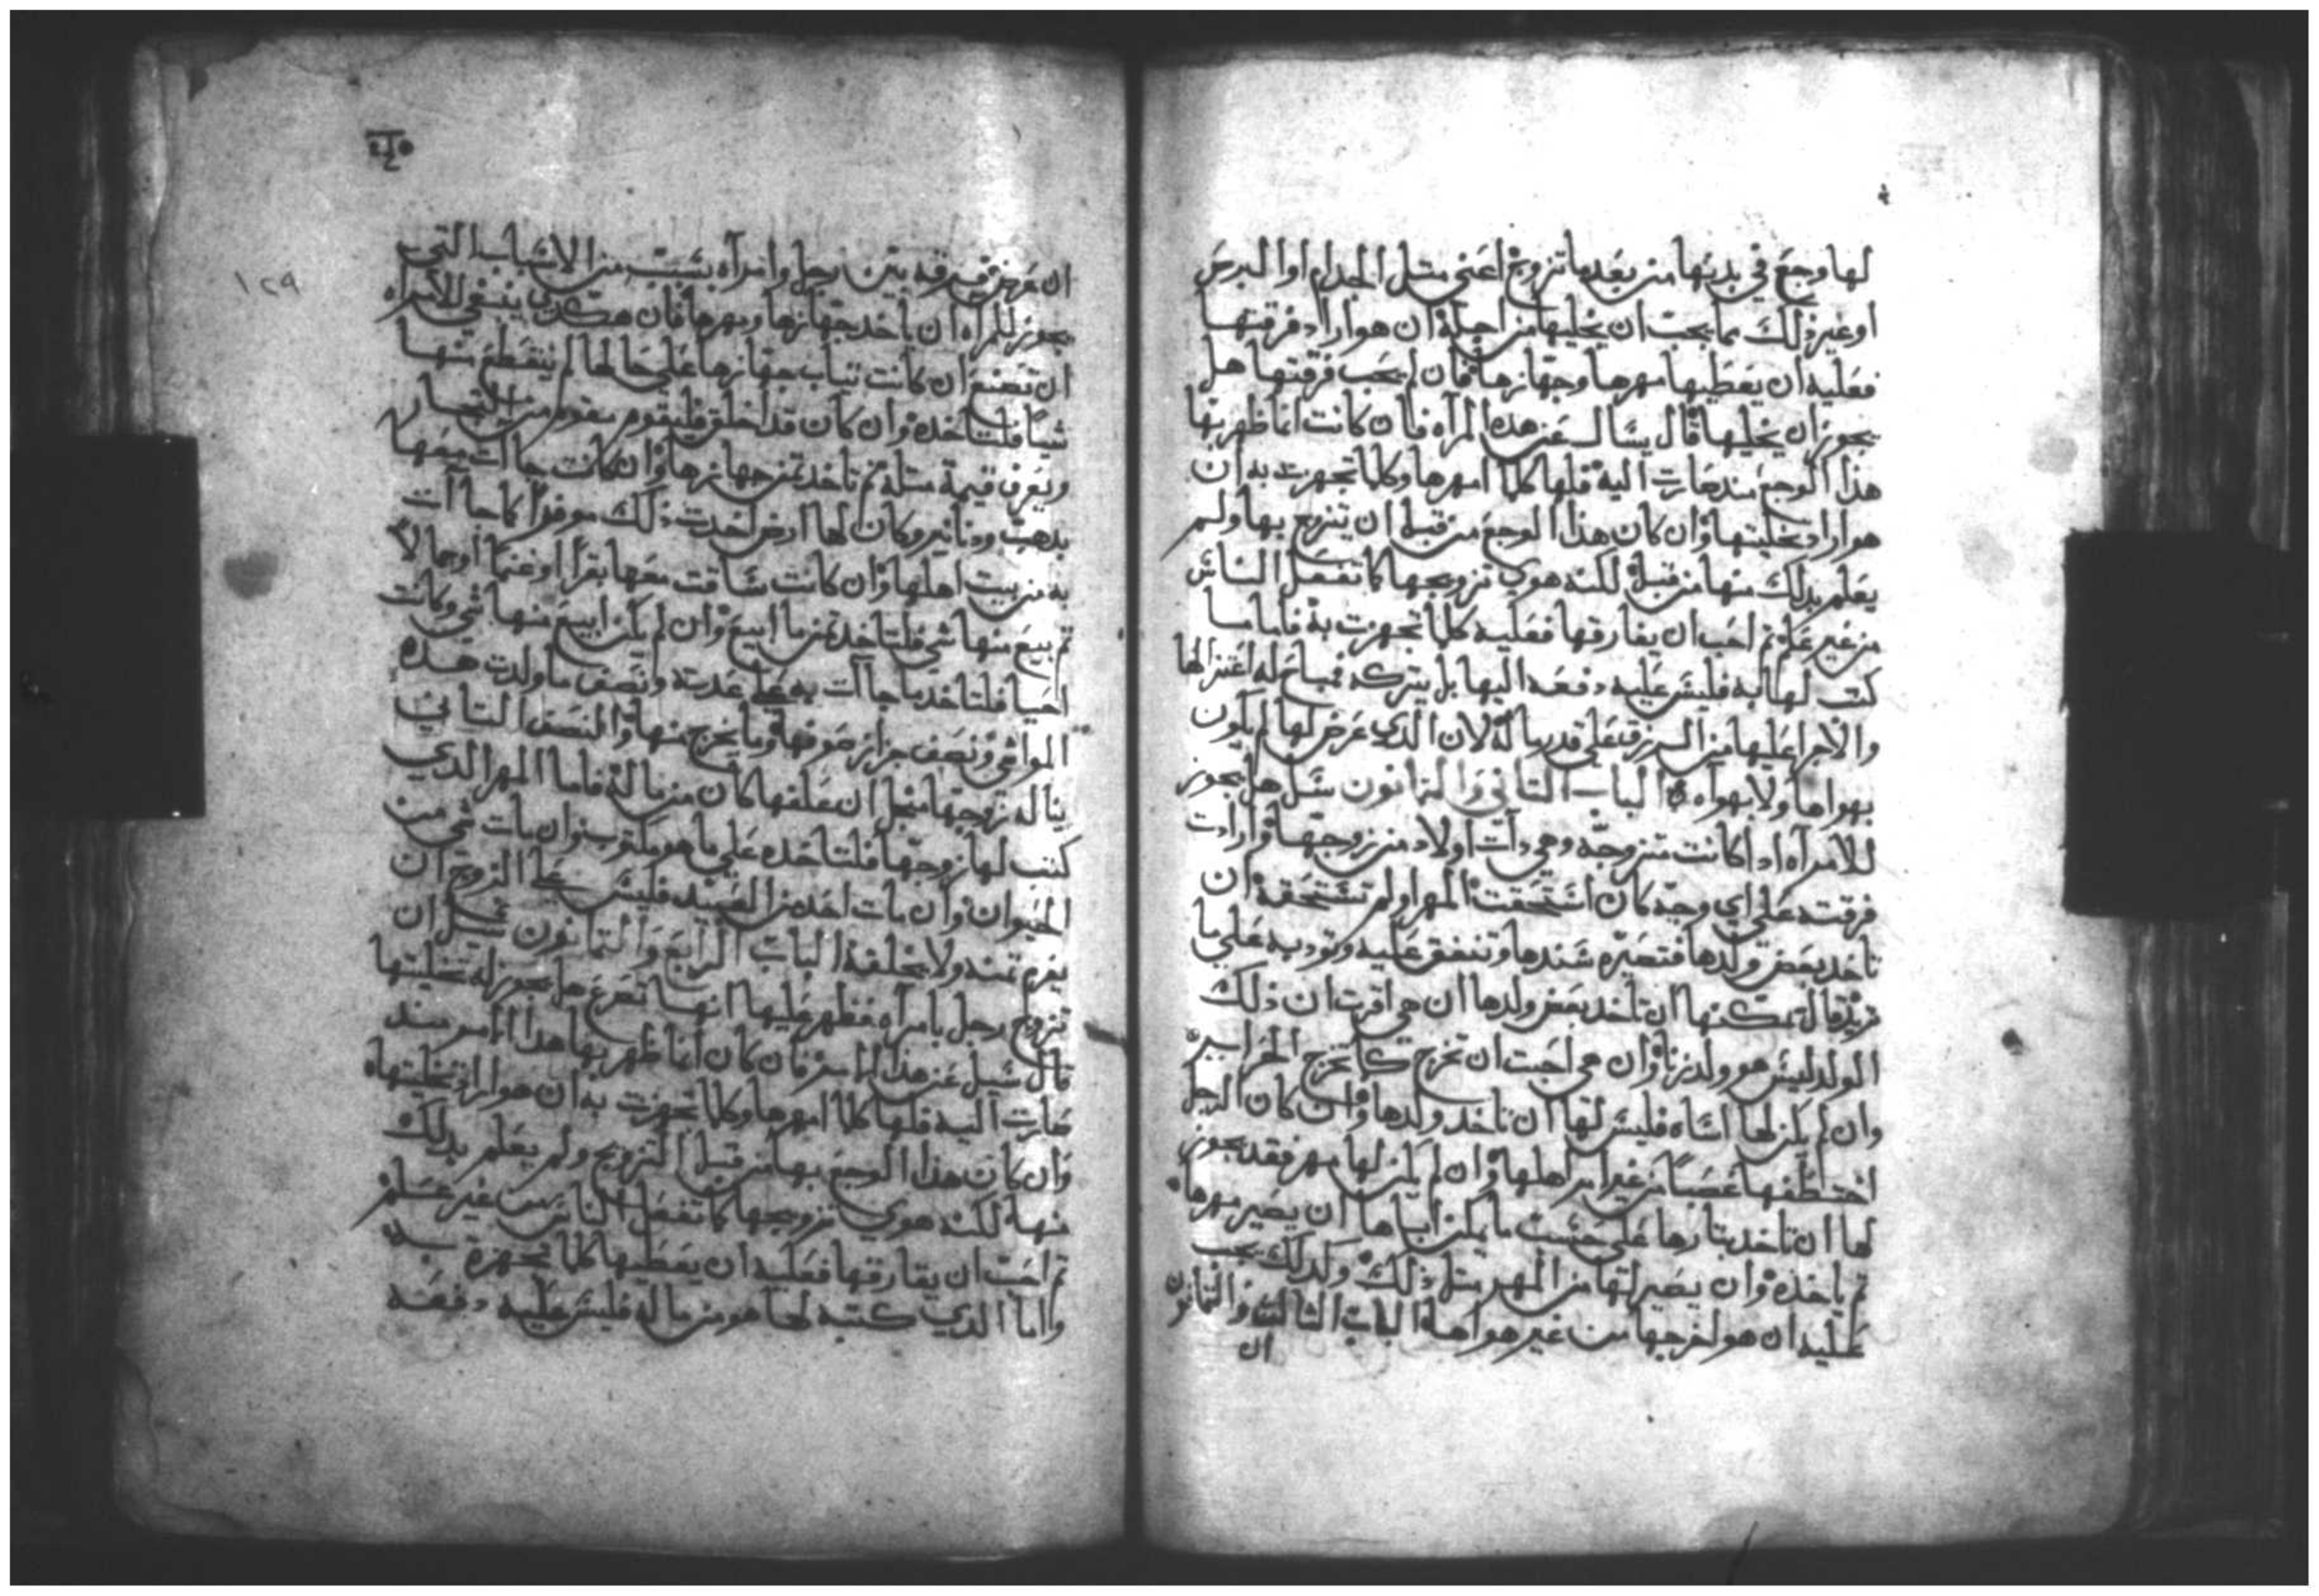 لها وجع في بدنها من بعدها تزوج اعني متل الجدام او البرص
او غير ذلك مما يجب ان يخليها من اجله ان هو اراد فرقتها
فعليه ان يعطيها مهرها وجهازها فان لم يجب فرقتها هل
يجوز ان يخليها قال يسال عن هده المرآه فان كانت انما ظهر بها
هذا الوجع مند صارت اليه فلها كلما امهرها وكلما تجهزت به ان
هو اراد تخليتها وان كان هذا الوجع من قبل ان يتزوج بها ولم
يعلم بدلك منها من قبل لكنه هوي تزويجها كما تفعل الناس
من غير علم تم احب ان يفارقها فعليه كلما تجهزت به فاما ما
كتب لها به فليس عليه دفعه اليها بل يتركه
والاجرا عليها من الرزق على قدر ماله لان الدي عرض لها لم يكون
بهواها ولا بهواه الباب التاني والتمانون سيل هل يجوز
للامرآه ادا كانت متزوجه وهي دآت اولاد من زوجها وارادت
فرقته على اي وجه كان استحقت المهر او لم تستحقه ان
تاخد بعض ولدها فتصيره عندها وتنفق عليه وتودبه على ما
تريد قال يمكنها ان تاخد بعض ولدها ان هي اقرت ان ذلك
الولد ليس هو ولد زنا وان هي احبت ان تخرج كما تخرج الحراير
وان لم يكن لها اساه فليس لها ان تاخد ولدها وان كان الرجل
اختطفها غصباً من غير امر اهلها وان لم يكن لها مهر فقد يجوز
لها ان تاخد بتارها على حسب ما يمكن اباها ان يصير مهرها
تم ياخده وان يصير لها من المهر متل ذلك وكدلك يجب
عليه ان هو اخرجها من غير هواها الباب التالت والتمانون
ان
١٢٩
ان عرض فرقه بين رجل وامرآه بسبب من الاسباب التي
يجوز للمرآه ان ياخد جهازها ومهرها فان هكدي ينبغي للامراه
ان تصنع ان كانت تياب جهازها على حالها لم ينقطع منها
شيا فلتاخده وان كان قد اخلق فليقوم بقوم من التجار
ويعرف قيمة متله تم تاخد تمن جهازها وان كانت جاات معها
بدهب ودنانير وكان لها ارض اخدت ذلك موفرا كما جاآت
به من بيت اهلها وان كانت ساقت معها بقرا او غنما او جمالا
تم بيع منها شي فلتاخد تمن ما ابيع وان لم يكن ابيع منها شي وكانت
احيا فلتاخد ما جاآت به على عدته ونصف ما ولدت هده
المواشي ونصف جزاز صوفها وما يخرج منها والنصف التاني
يناله زوجها من اجل ان علفها كان من ماله فاما المهر الدي
كتب لها زوجها فلتاخده على ما هو مكتوب وان مات شي من
الحيوان وان مات احد من العبيد فليس على الزوج ان
يغرم تمنه ولا يخلفه الباب الرابع والتمانون سيل ان
تزوج رجل بامرآه فظهر عليها انها تصرع هل يجوز له تخليتها
قال سيل عن هذا الامر فان كان انما ظهر بها هدا الامر مند
صارت اليه فلها كلما امهرها وكلما تجهزت به ان هو اراد تخليتها
وان كان هذا الوجع بها من قبل التزويج ولم يعلم بدلك
منها لكنه هوي تزويجها كما تفعل الناس من غير علم
تم احب ان يفارقها فعليه ان يعطيها كلما تجهزة به
واما الدي كتبه لها هو من ماله فليس عليه دفعه